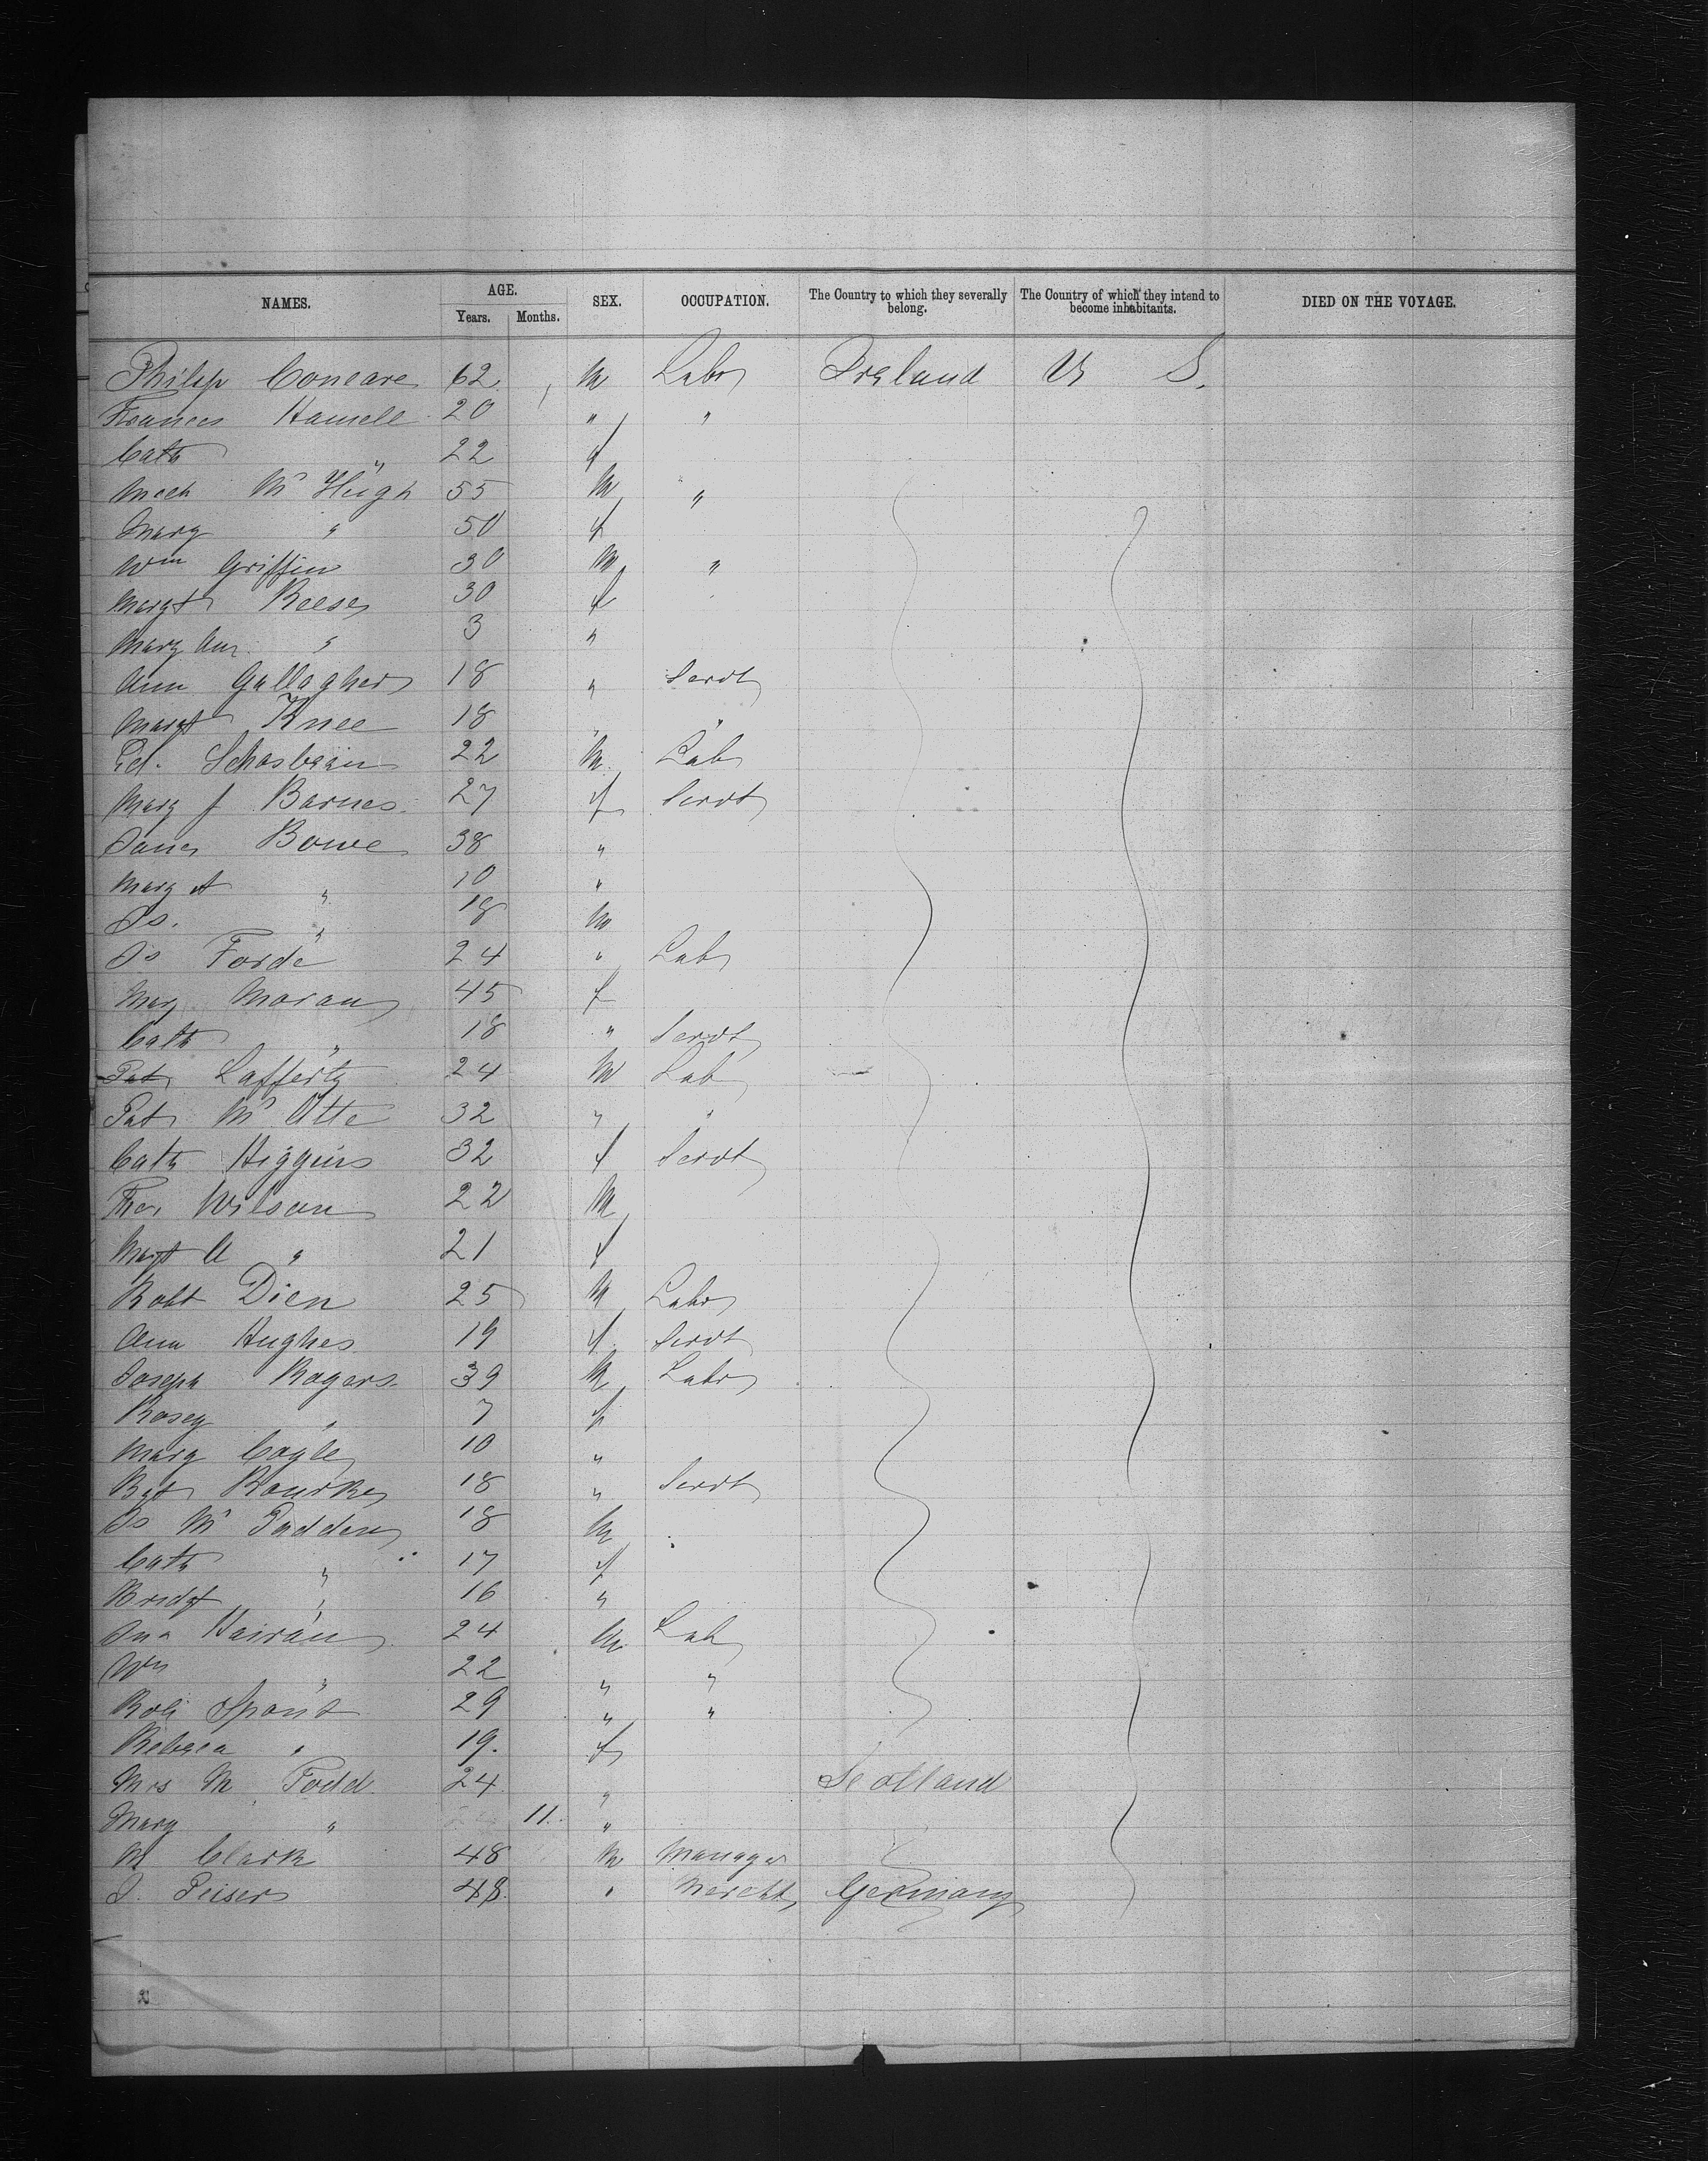 NAMES. AGE. SEX. OCCUPATION. The Country to which they severally belong. The Country of which they intend to become inhabitants. DIED ON THE VOYAGE.
Years. Months.
Philip Coneare 62 M Labr Ireland U S.
Frances Hamell 20 " "
Cath " 22 f
Mich Mc Hugh 55 M "
Mary " 50 f
Wm Griffin 30 M "
Margt Reese 30 f
Mary Ann " 3 "
Ann Gallagher 18 " Servt
Margt Knee 18 " "
Ed. 22 M Lab
Mary J Barnes 27 f Servt
Jane Bowe 38 "
Marg A " 10 "
Js. " 18 M
Js Forde 24 " Lab
Mary Moran 45 f
Cath " 18 " Servt
Pat Lafferty 24 M Lab
Pat Mc Atte 32 " "
Cath Higgins 32 f Servt
Wilson 22 M
Margt A " 21 f
Robt Dien 25 M Labr
Ann Hughes 19 f Servt
Joseph Rogers. 39 M Labr
Rosey " 7 f
Mary Coyle 10 "
Bgt Rourke 18 " Servt
Js Mc Padden 18 M
Cath " 17 f
Bridgt " 16 "
Jno Hairan 24 M Lab
Wm " 22 " "
Robt 29 " "
Rebeca " 19. f
Mrs M Todd 24 " Scotland
Mary " 11. "
M Clark 48 M Manager
J. Peiser 48. " Mercht Germany